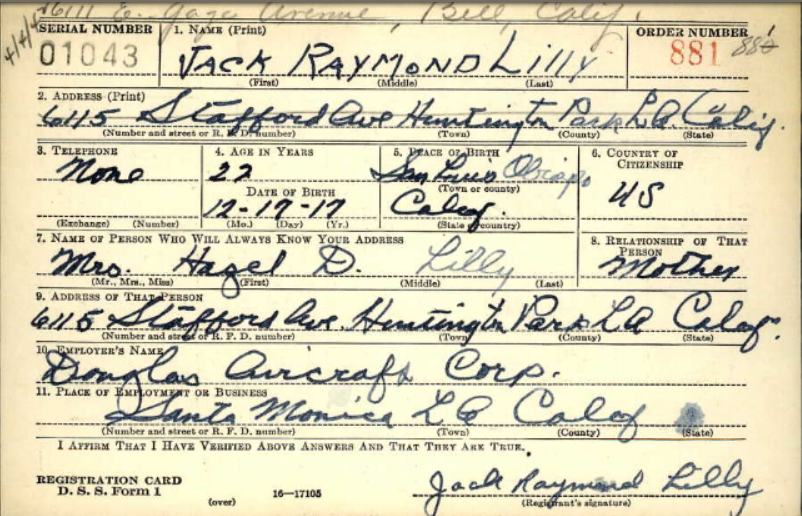 6111 E. Gage Avenue, Bell, Calif.
4/4/4
SERIAL NUMBER 1. NAME (Print) ORDER NUMBER
01043 JACK RAYMOND LILLY 881 882
(First) (Middle) (Last)
2. ADDRESS (Print)
6115 Stafford Ave Huntington Park LA Calif.
(Number and street or R. F. D. number) (Town) (County) (State)
3. TELEPHONE 4. AGE IN YEARS 5. PLACE OF BIRTH 6. COUNTRY OF CITIZENSHIP
None 22 San Luis Obispo US
DATE OF BIRTH (Town or county)
12-17-17 Calif.
(Exchange) (Number) (Mo.) (Day) (Yr.) (State or country)
7. NAME OF PERSON WHO WILL ALWAYS KNOW YOUR ADDRESS 8. RELATIONSHIP OF THAT PERSON
Mrs. Hazel D. Lilly Mother
(Mr., Mrs., Miss) (First) (Middle) (Last)
9. ADDRESS OF THAT PERSON
6115 Stafford Ave. Huntington Park LA Calif.
(Number and street or R. F. D. number) (Town) (County) (State)
10. EMPLOYER'S NAME
Douglas Aircraft Corp.
11. PLACE OF EMPLOYMENT OR BUSINESS
Santa Monica LA Calif
(Number and street or R. F. D. number) (Town) (County) (State)
I AFFIRM THAT I HAVE VERIFIED ABOVE ANSWERS AND THAT THEY ARE TRUE.
REGISTRATION CARD
D. S. S. Form 1 (over) 16—17105
Jack Raymond Lilly
(Registrant's signature)